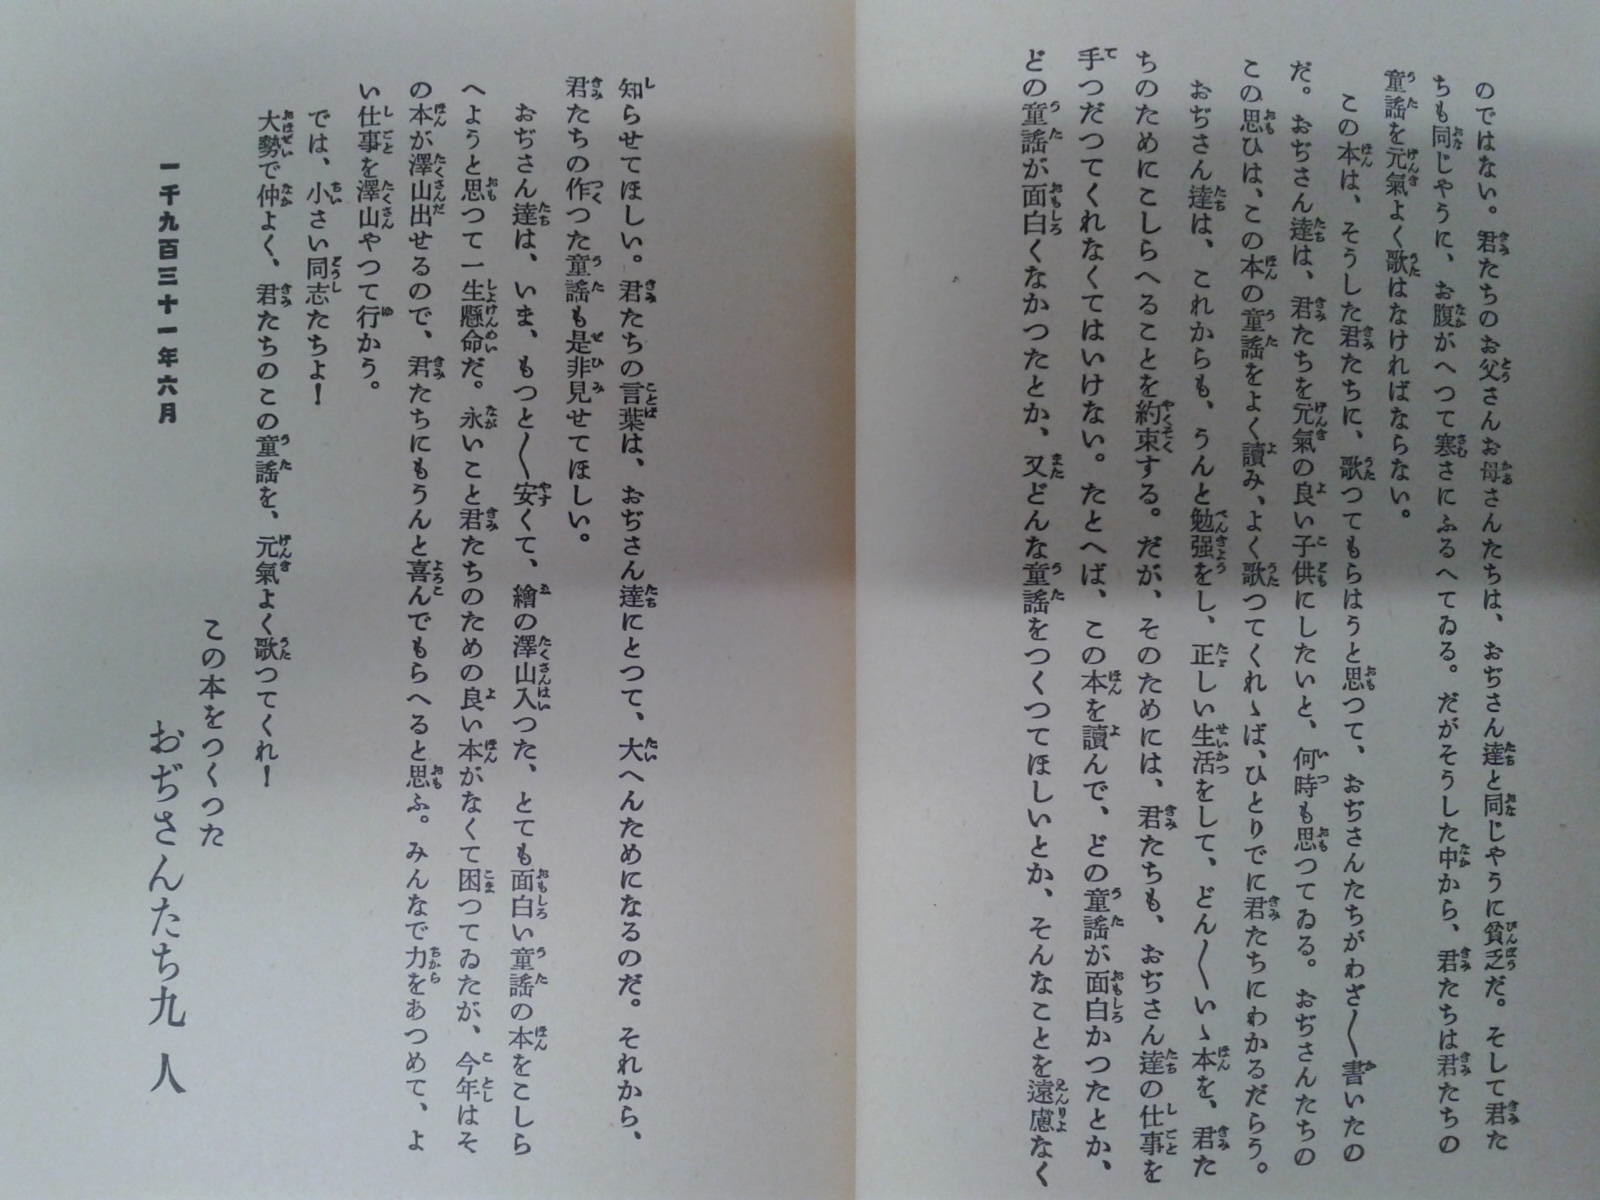 のではない。君たちのお父さんお母さんたちは、おぢさん達と同じやうに貧乏だ。そして君た
ちも同じやうに、お腹がへつて寒さにふるへてゐる。だがそうした中から、君たちは君たちの
童謠を元氣よく歌はなければならない。
この本は、そうした君たちに、歌つてもらはうと思つて、おぢさんたちがわざ〳〵書いたの
だ。おぢさん達は、君たちを元氣の良い子供にしたいと、何時も思つてゐる。おぢさんたちの
この思ひは、この本の童謠をよく讀み、よく歌つてくれゝば、ひとりでに君たちにわかるだらう。
おぢさん達は、これからも、うんと勉强をし、正しい生活をして、どん〳〵いゝ本を、君た
ちのためにこしらへることを約束する。だが、そのためには、君たちも、おぢさん達の仕事を
手つだつてくれなくてはいけない。たとへば、この本を讀んで、どの童謠が面白かつたとか、
どの童謠が面白くなかつたとか、又どんな童謠をつくつてほしいとか、そんなことを遠慮なく
知らせてほしい。君たちの言葉は、おぢさん達にとつて、大へんためになるのだ。それから、
君たちの作つた童謠も是非見せてほしい。
おぢさん達は、いま、もつと〳〵安くて、繪の澤山入つた、とても面白い童謠の本をこしら
へようと思つて一生懸命だ。永いこと君たちのための良い本がなくて困つてゐたが、今年はそ
の本が澤山出せるので、君たちにもうんと喜んでもらへると思ふ。みんなで力をあつめて、よ
い仕事を澤山やつて行かう。
では、小さい同志たちよ！
大勢で仲よく、君たちのこの童謠を、元氣よく歌つてくれ！
一千九百三十一年六月
この本をつくつた
おぢさんたち九人